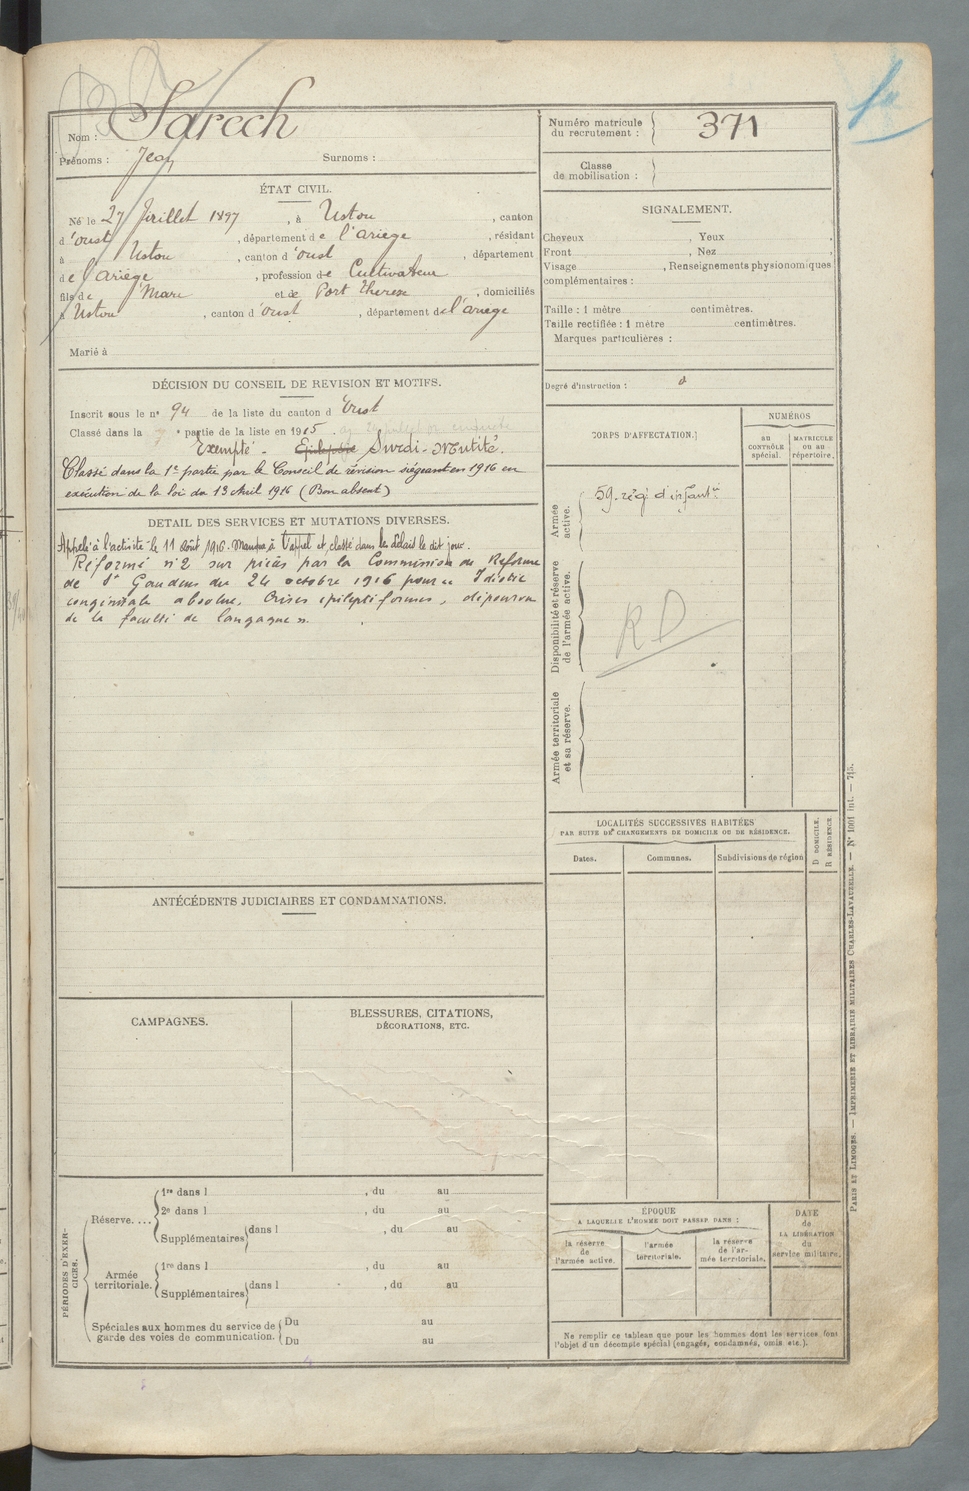 Nom : Sarech
Prénoms : Jean Surnoms :
ÉTAT CIVIL.
Né le 27 Juillet 1897, à Ustou, canton
d'oust, département de l'Ariège, résidant
à Ustou, canton d'oust, département
de l'Ariège, profession de Cultivateur
fils de Marc et de Port Therese, domiciliés
à Ustou, canton d'oust, département de l'ariege
Marié à
DÉCISION DU CONSEIL DE REVISION ET MOTIFS.
Inscrit sous le n° 94 de la liste du canton d'Oust
Classé dans la e partie de la liste en 1915.
Exempté - Epilepsie Surdi-Mutité.
Classé dans la 1e partie par le Conseil de révision siégeant en 1916 en
exécution de la loi du 13 Avril 1916 (Bon absent)
DETAIL DES SERVICES ET MUTATIONS DIVERSES.
Appelé à l'activité le 11 Août 1916. Manqua à l'appel et classé dans les délais le dit jour.
Réformé n°2 sur pièces par la Commission de Réforme
de St Gaudens du 24 octobre 1916 pour « Idiotie
congénitale absolue, Crises épileptiformes, dépourvu
de la faculté de langage ».
ANTÉCÉDENTS JUDICIAIRES ET CONDAMNATIONS.
CAMPAGNES.
BLESSURES, CITATIONS,
DÉCORATIONS, ETC.
PÉRIODES D'EXERCICES.
Réserve....
1re dans l , du au
2e dans l , du au
Supplémentaires dans l , du au
Armée
territoriale.
1re dans l , du au
Supplémentaires dans l , du au
Spéciales aux hommes du service de
garde des voies de communication.
Du au
Du au
Numéro matricule
du recrutement : 371
Classe
de mobilisation :
SIGNALEMENT.
Cheveux , Yeux .
Front , Nez ,
Visage , Renseignements physionomiques
complémentaires :
Taille : 1 mètre centimètres.
Taille rectifiée : 1 mètre centimètres.
Marques particulières :
Degré d'instruction : 0
CORPS D'AFFECTATION.
NUMÉROS
au
CONTRÔLE
spécial.
MATRICULE
ou au
répertoire.
Armée
active.
59. régt d'infantie
Disponibilité et réserve
de l'armée active.
RD
Armée territoriale
et sa réserve.
LOCALITÉS SUCCESSIVES HABITÉES
PAR SUITE DE CHANGEMENTS DE DOMICILE OU DE RÉSIDENCE.
Dates. Communes. Subdivisions de région
D DOMICILE.
R RÉSIDENCE.
ÉPOQUE
A LAQUELLE L'HOMME DOIT PASSER DANS :
la réserve
de
l'armée active.
l'armée
territoriale.
la réserve
de l'ar-
mée territoriale.
DATE
de
LA LIBÉRATION
du
service militaire.
Ne remplir ce tableau que pour les hommes dont les services font
l'objet d'un décompte spécial (engagés, condamnés, omis etc.).
PARIS ET LIMOGES. — IMPRIMERIE ET LIBRAIRIE MILITAIRES CHARLES-LAVAUZELLE. — N° 1001 int. — 715.